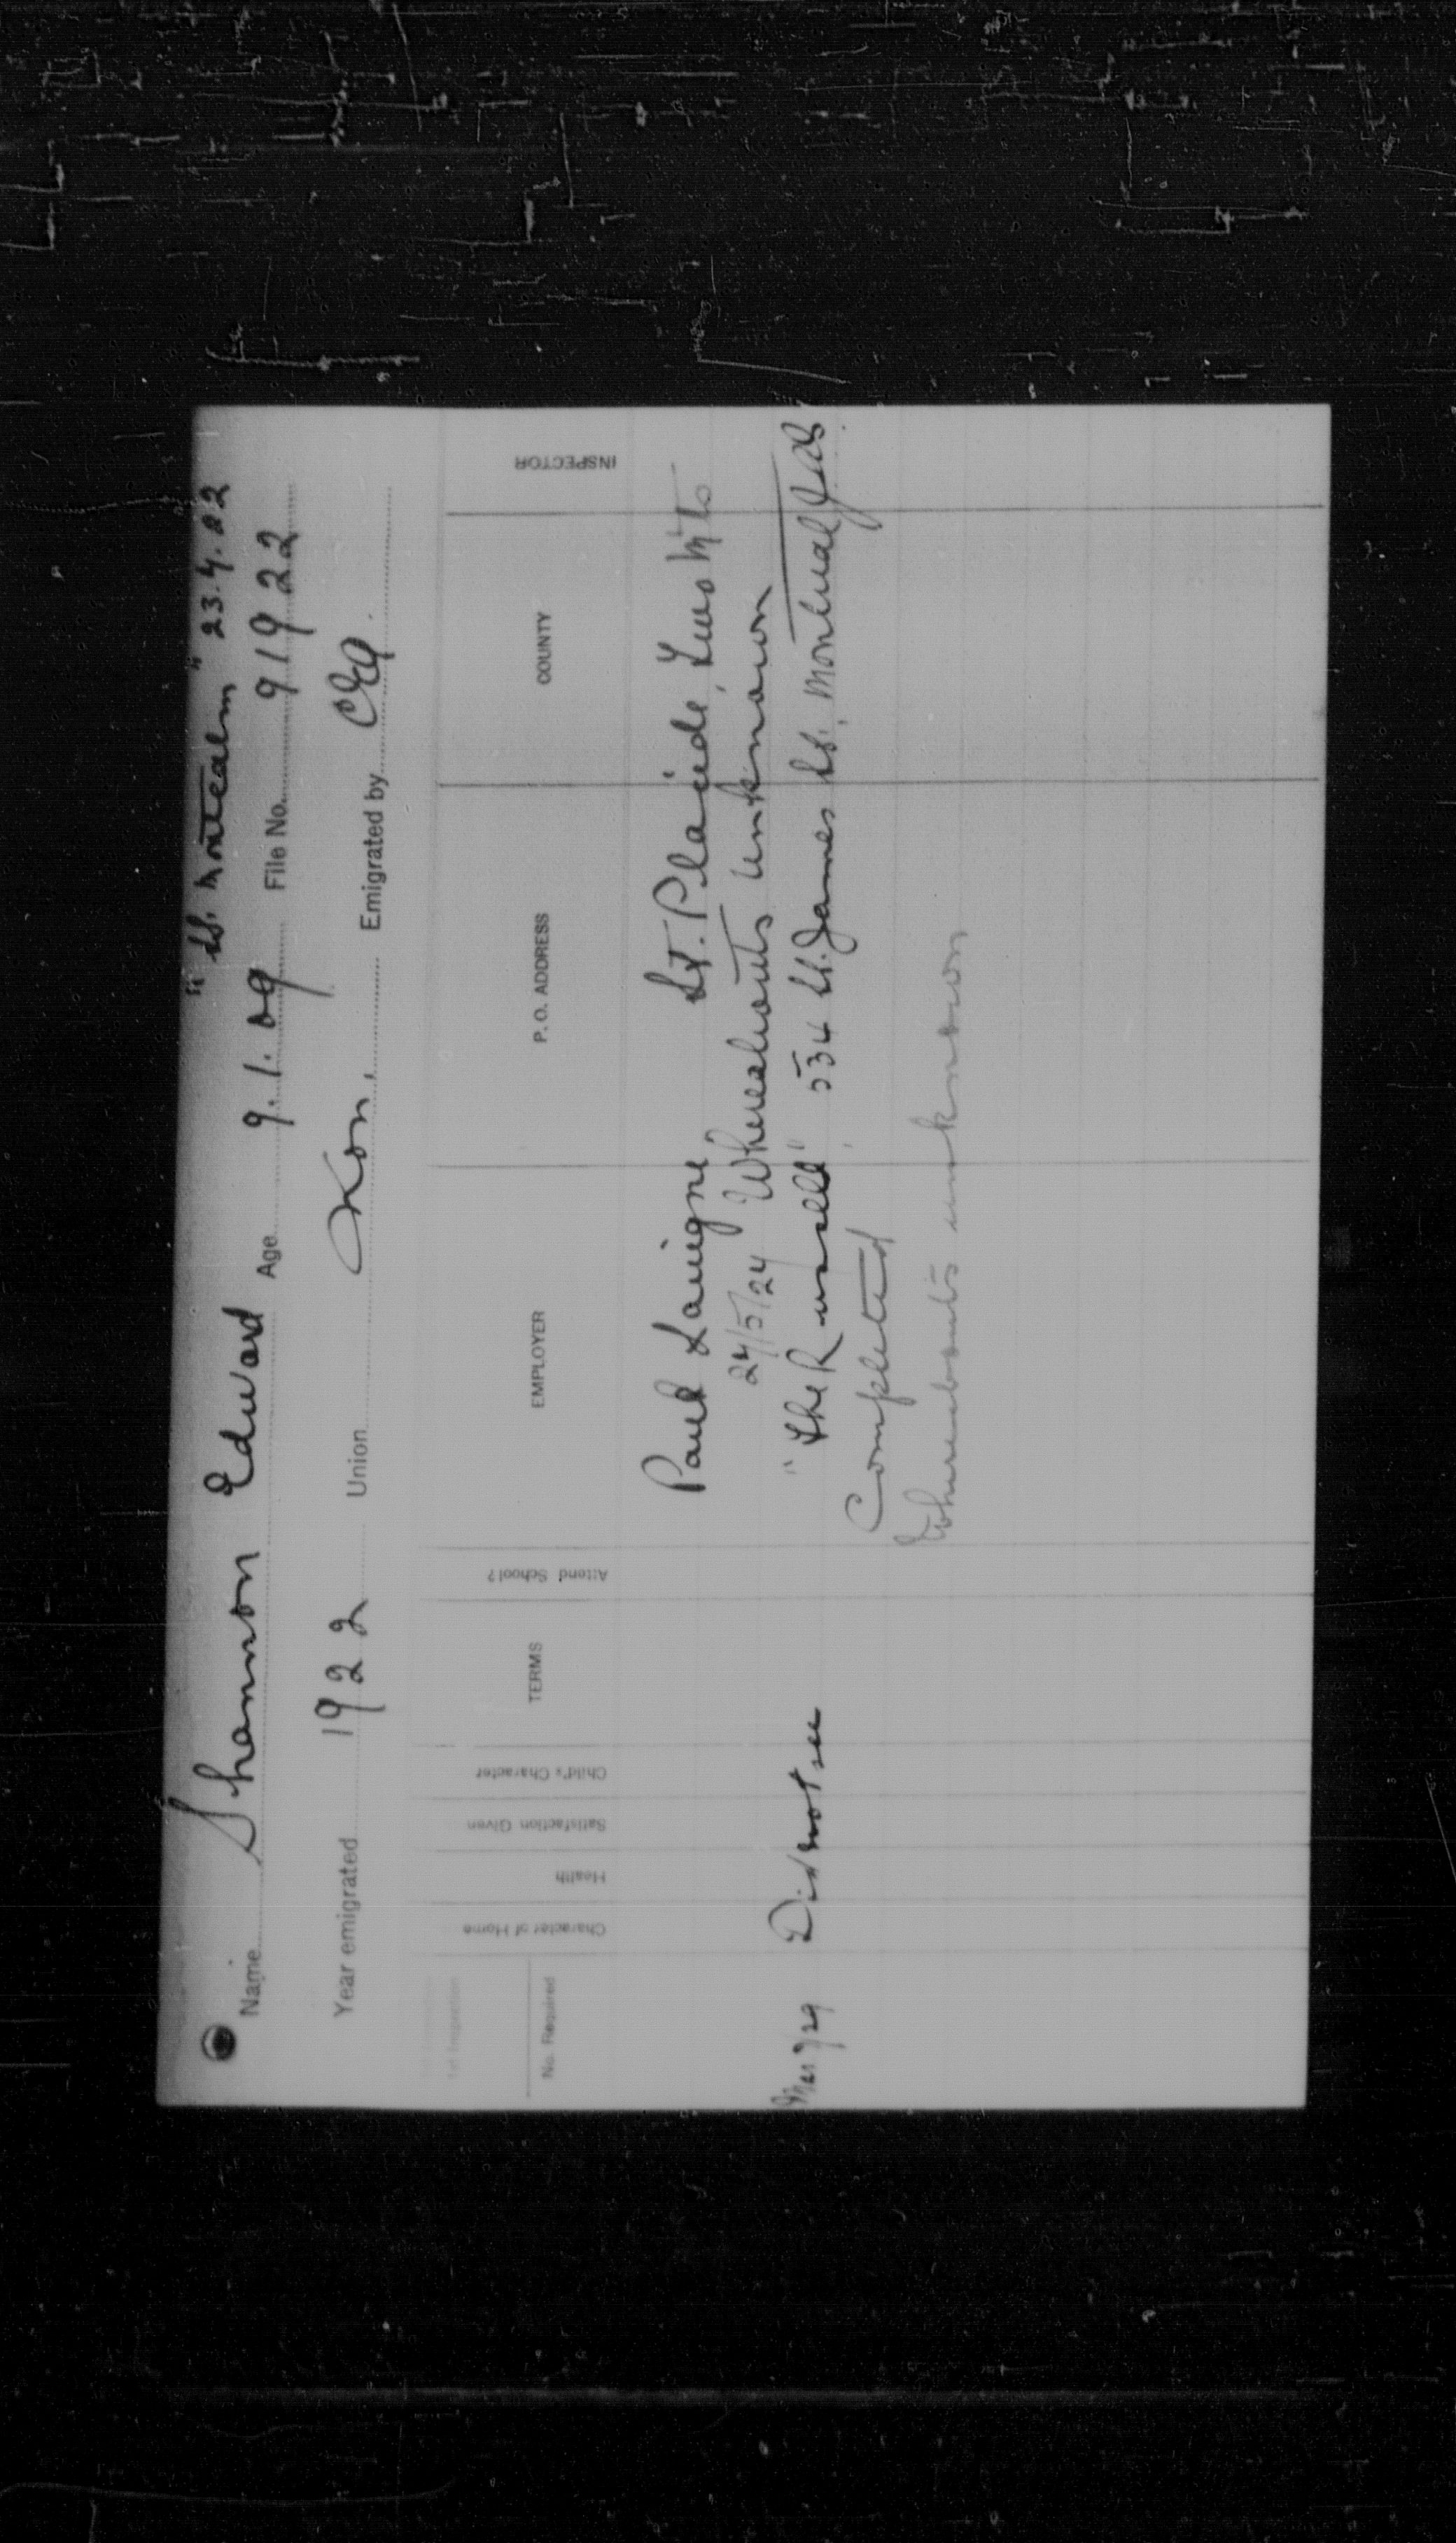 "SS. Montcalm" 23.4.22
Name Shannon Edward Age 9.1.09 File No. 91922
Year emigrated 1922 Union Non. Emigrated by CEA.
1st Inspection
No. Required Character of Home Health Satisfaction Given Child's Character TERMS Attend School? EMPLOYER P. O. ADDRESS COUNTY INSPECTOR
Paul Lavigne St. Placide, Two Mts
24/5/24 Whereabouts unknown
Mar 7/29 Did not see "The Russell" 534 St. James St. Montreal
Completed
Whereabouts unknown